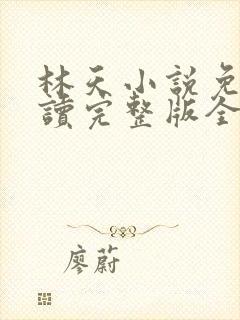 林天小說免
讀完整版全
廖蔚